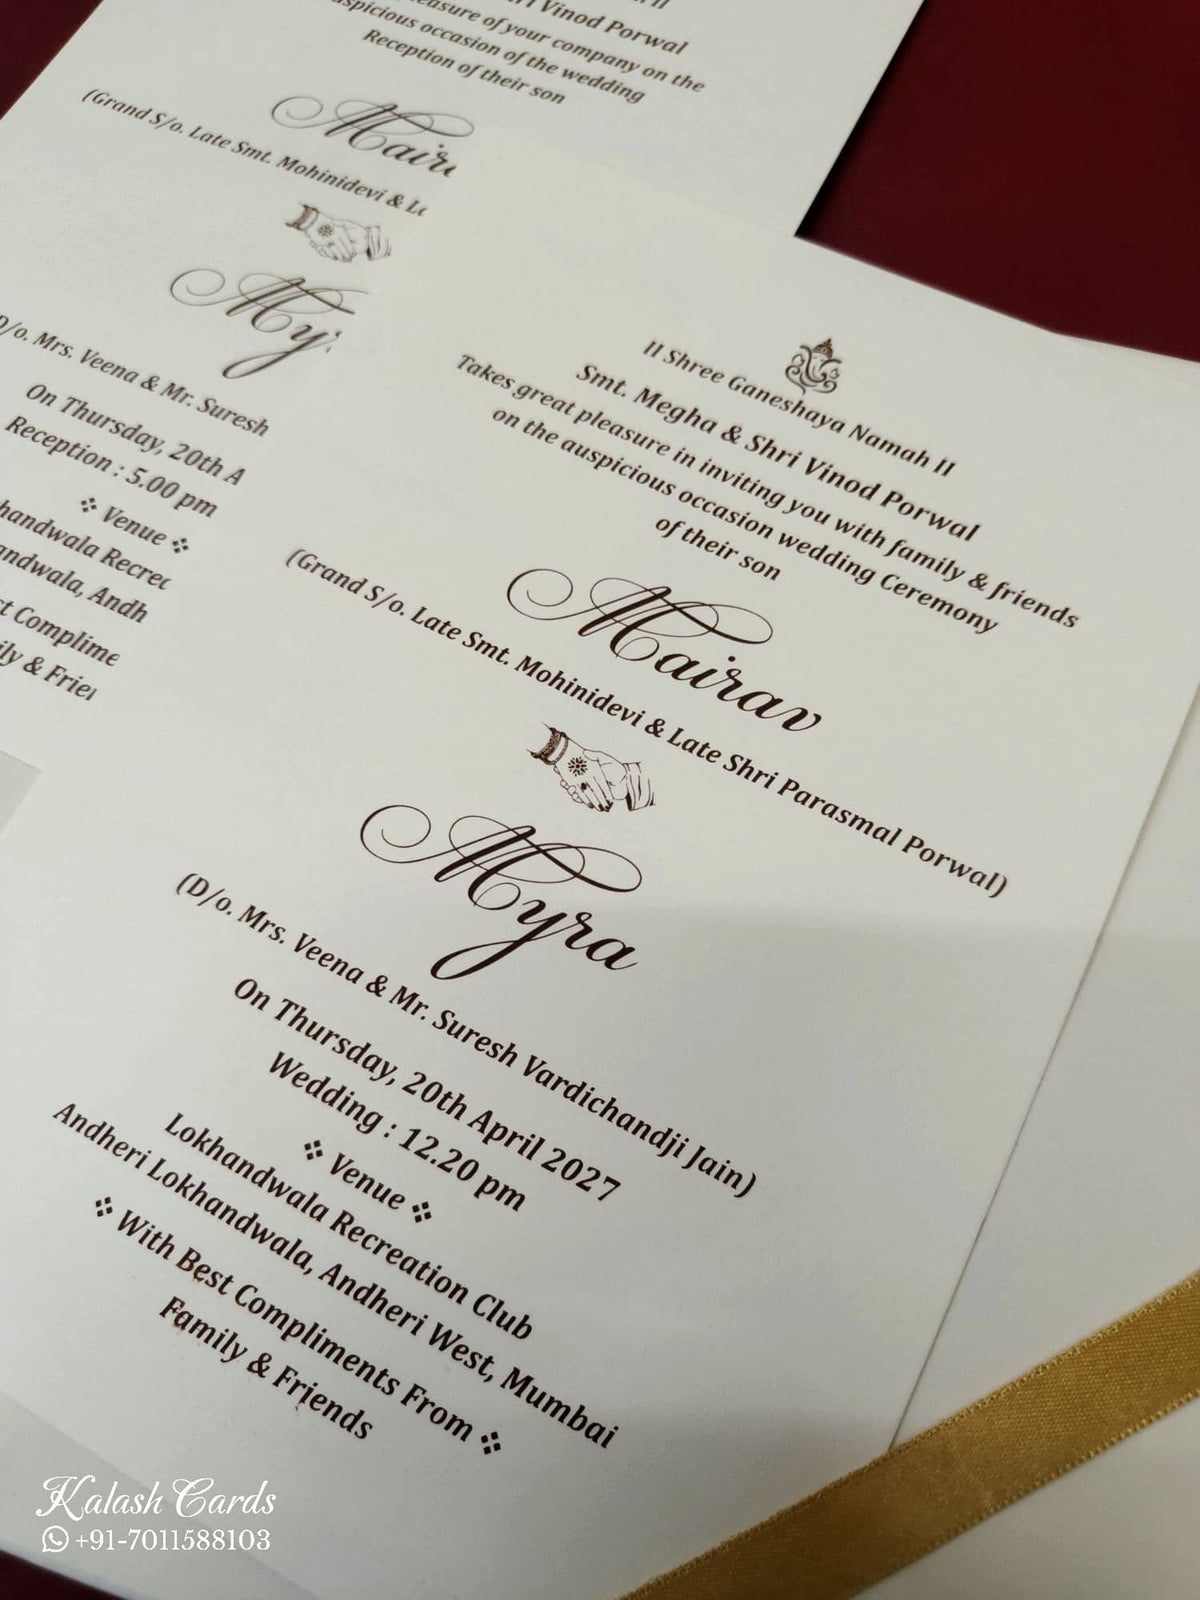 Shri Vinod Porwal
pleasure of your company on the
auspicious occasion of the wedding
Reception of their son
(Grand S/o. Late Smt. Mohinidevi &
D/o. Mrs. Veena & Mr. Suresh
On Thursday, 20th A
Reception : 5.00 pm
Venue
II Shree Ganeshaya Namah II
Smt. Megha & Shri Vinod Porwal
Takes great pleasure in inviting you with family & friends
on the auspicious occasion wedding Ceremony
of their son
Mairav
(Grand S/o. Late Smt. Mohinidevi & Late Shri Parasmal Porwal)
Myra
(D/o. Mrs. Veena & Mr. Suresh Vardichandji Jain)
On Thursday, 20th April 2027
Wedding : 12.20 pm
Venue
Lokhandwala Recreation Club
Andheri Lokhandwala, Andheri West, Mumbai
With Best Compliments From
Family & Friends
Kalash Cards
+91-7011588103